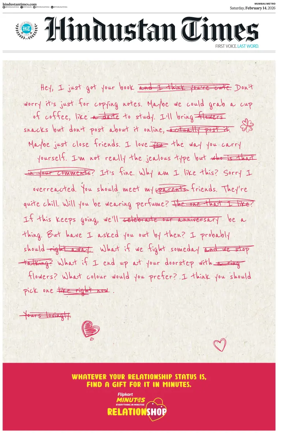 hindustantimes.com
Hindustan Times
Saturday, February 14, 2026
FIRST VOICE. LAST WORD.
Hey, I just got your book and I think you're cute Don't
worry it's just for copying notes. Maybe we could grab a cup
of coffee, like a date to study. I'll bring flowers
snacks but don't post about it online, actually post it
Maybe just close friends. I love you the way you carry
yourself. I'm not really the jealous type but who is that
in your comments? It's fine. Why am I like this? Sorry I
overreacted. You should meet my parents friends. They're
quite chill. Will you be wearing perfume? The one that I like?
If this keeps going, we'll celebrate our anniversary be a
thing. But have I asked you out by then? I probably
should right away. What if we fight someday and we stop
talking? What if I end up at your doorstep with
flowers? What colour would you prefer? I think you should
pick one like right now
Yours lovingly,
WHATEVER YOUR RELATIONSHIP STATUS IS,
FIND A GIFT FOR IT IN MINUTES.
Flipkart
MINUTES
RELATIONSHOP